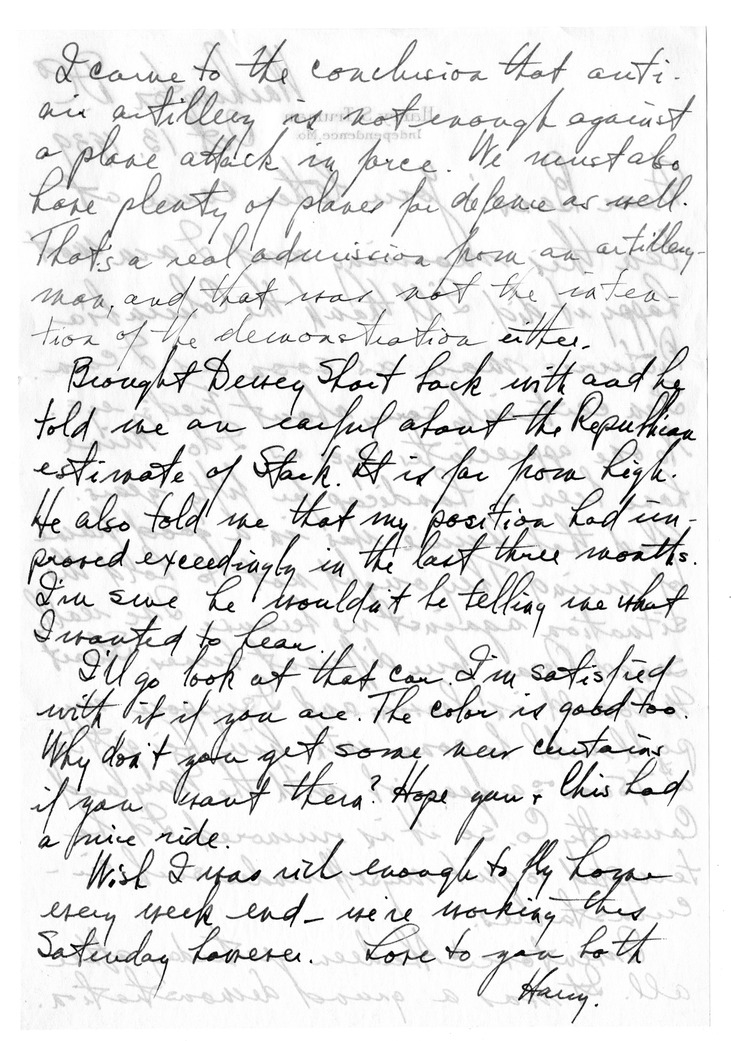 I came to the conclusion that anti-
air artillery is not enough against
a plane attack in force. We must also
have plenty of planes for defense as well.
That's a real admission from an artillery-
man, and that was not the inten-
tion of the demonstration either.
Brought Dewey Short back with and he
told me an earful about the Republican
estimate of Stark. It is far from high.
He also told me that my position had im-
proved exceedingly in the last three months.
I'm sure he wouldn't be telling me what
I wanted to hear.
I'll go look at that car. I'm satisfied
with it if you are. The color is good too.
Why don't you get some new curtains
if you want them? Hope you + Chris had
a nice ride.
Wish I was rich enough to fly home
every week end - we're working this
Saturday however. Love to you both
Harry.
Harry S. Truman
Independence, Mo.